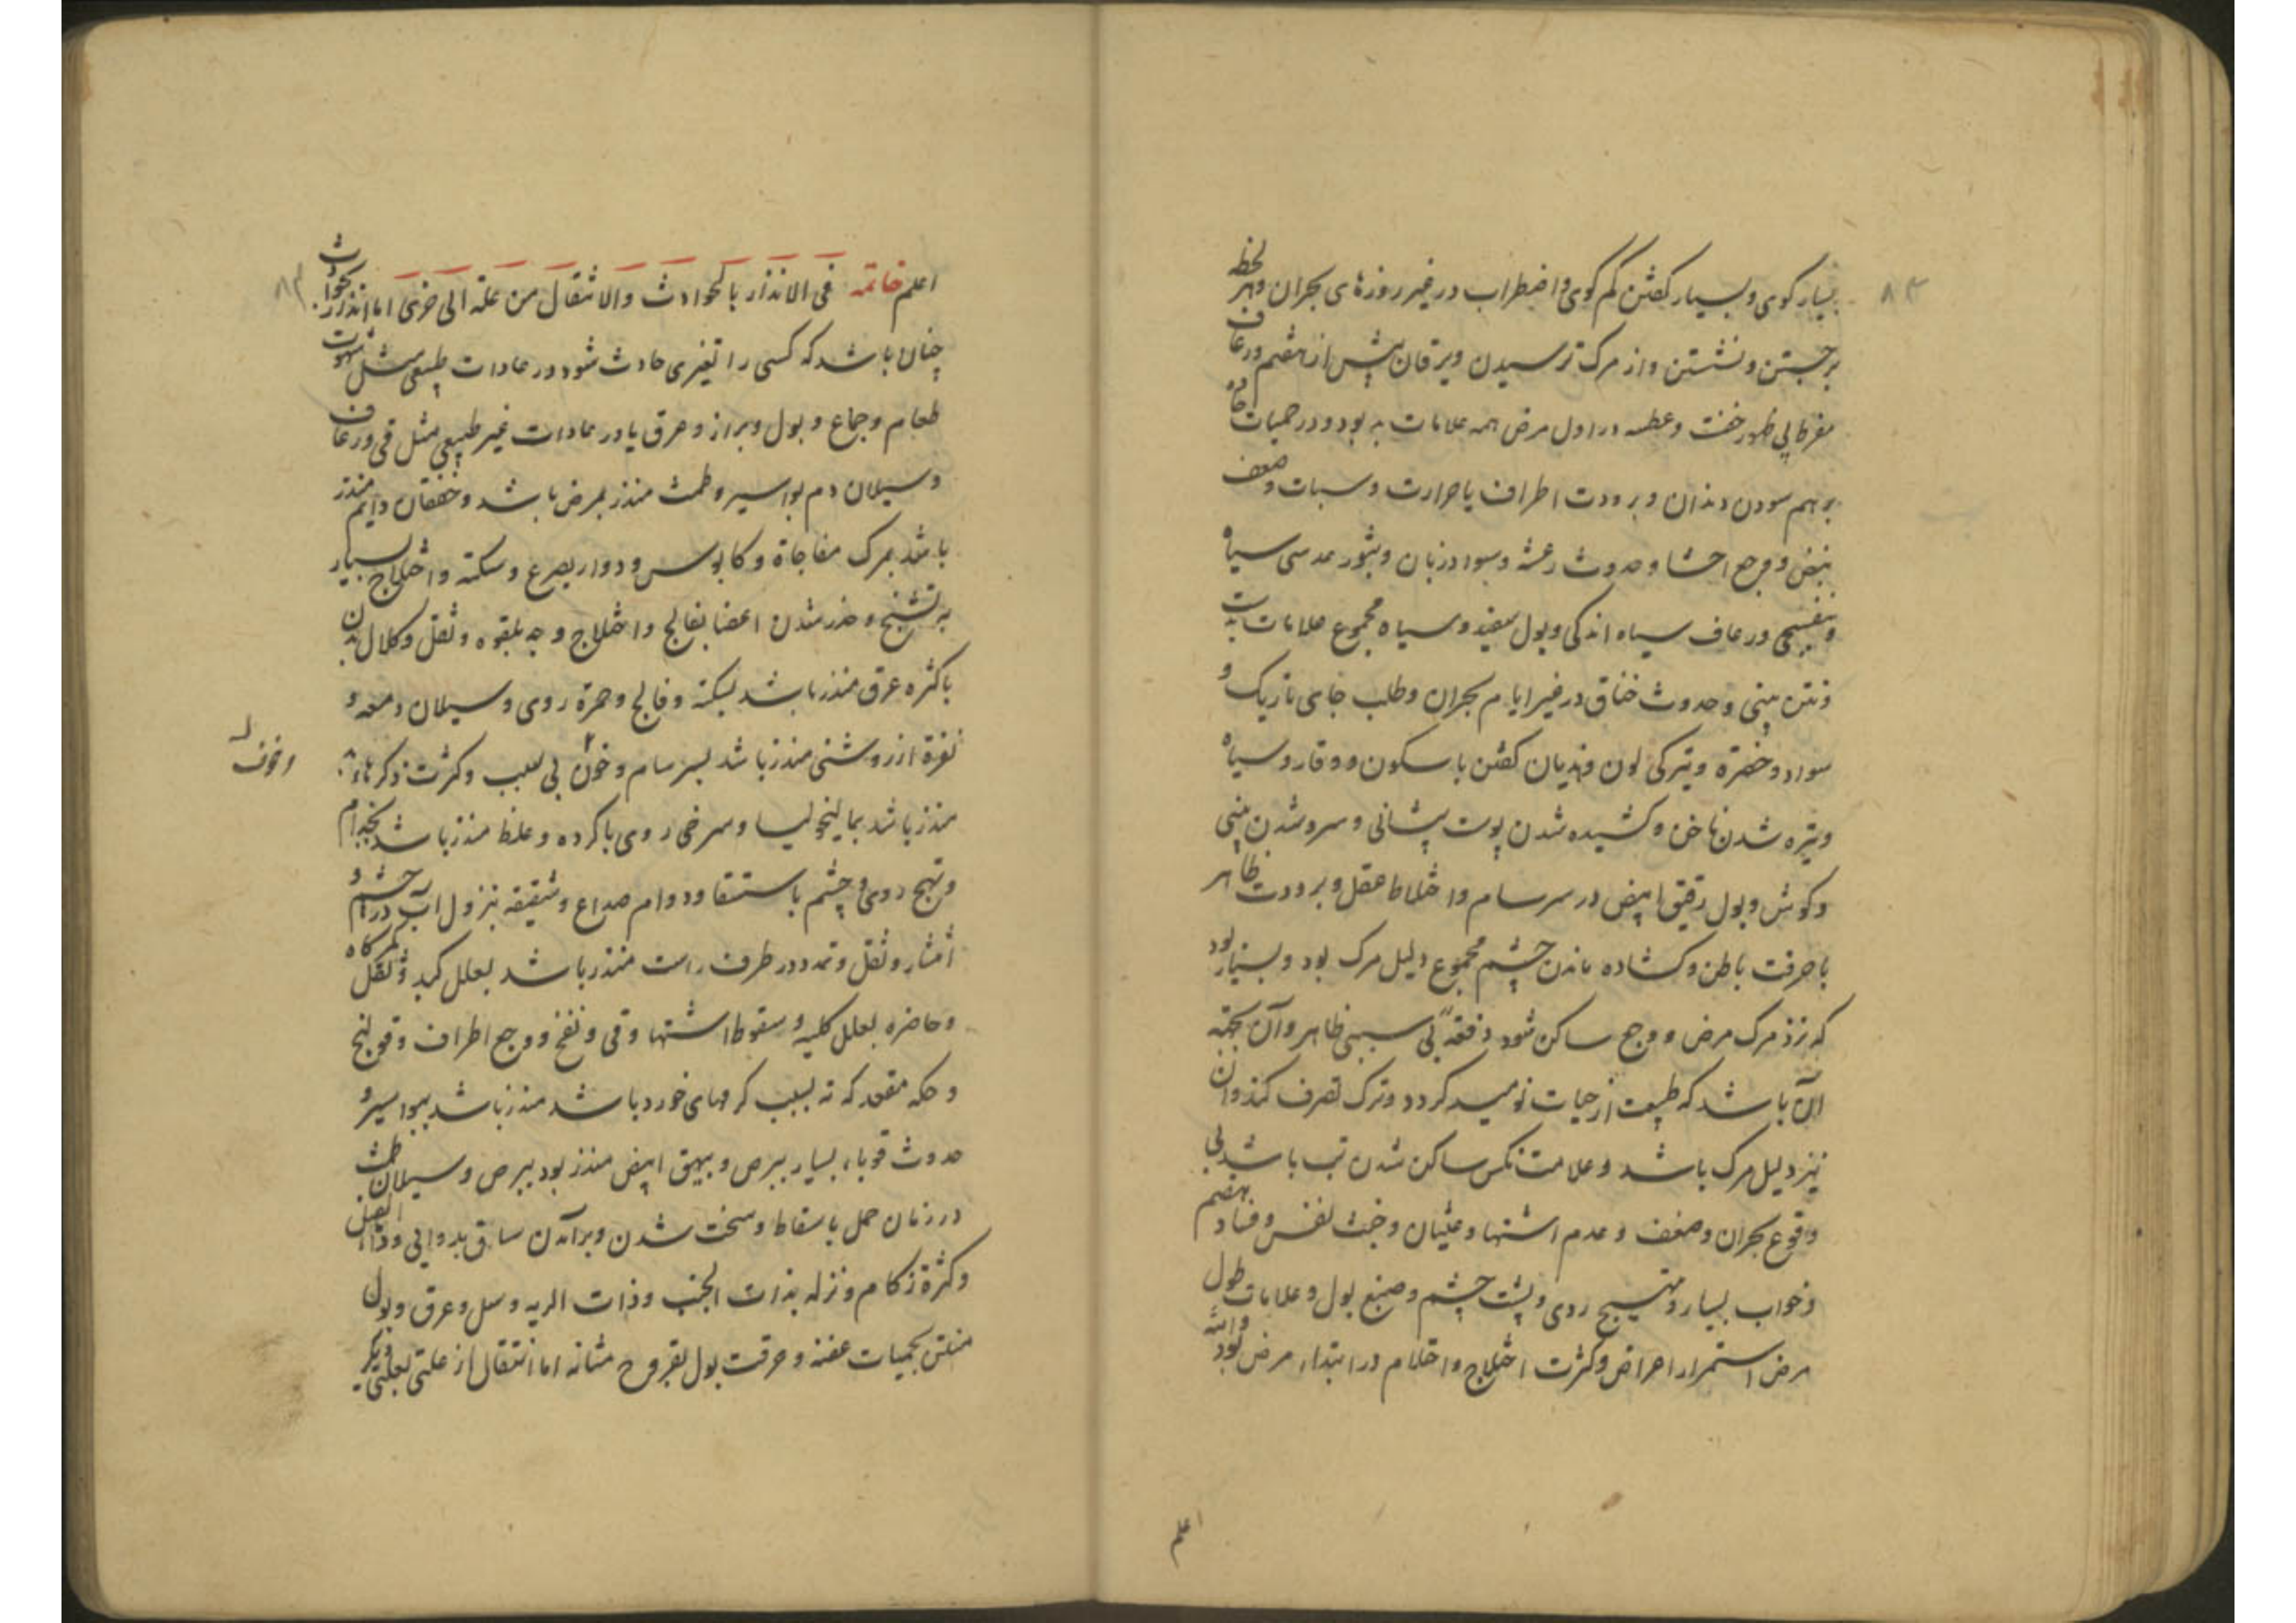 بسیار کوی و بسیار کفتن کم کوی و اضطراب در غیر روزهای بحران و هر لحظه
برجستن و نشستن و از مرک ترسیدن و یرقان پیش از هفتم و رعاف
مفرط بی ظهور خفت و عطسه در اول مرض همه علامات بد بود و در حمیات حاده
برهم سودن دندان و برودت اطراف با حرارت و سبات و ضعف
نبض و وجع احشا و حدوث رعشه و سواد زبان و بثور عدسی سیاه
و بنفسجی و رعاف سیاه اندکی و بول سفید و سیاه مجموع علامات بدست
و نتن بینی و حدوث خناق در غیر ایام بحران و طلب جای تاریک و
سواد و خضرة و تیرکی لون و هذیان کفتن با سکون و وقار و سیاه
و تیره شدن ناخن و کشیده شدن پوست پیشانی و سرد شدن بینی
و کوش و بول رقیق ابیض در سرسام و اختلاط عقل و برودت ظاهر
با حرقت باطن و کشاده ماندن چشم مجموع دلیل مرک بود و بسیار بود
که نزد مرک مرض و وجع ساکن شود دفعة بی سببی ظاهر و آن بجهة
آن باشد که طبیعت از حیات نومید کردد و ترک تصرف کند و آن
نیز دلیل مرک باشد و علامت نکس ساکن شدن تب باشد بی
وقوع بحران و ضعف و عدم اشتها و غثیان و خبث نفس و فساد هضم
و خواب بسیار و تهیج روی و پشت چشم و صبغ بول و علامات طول
مرض استمرار اعراض و کثرت اختلاج و احلام در ابتداء مرض بود والله
اعلم
اعلم خاتمه فی الانذار بالحوادث والانتقال من علة الی اخری اما انذار بحوادث
چنان باشد که کسی را تغیری حادث شود در عادات طبیعی مثل شهوت
طعام و جماع و بول و براز و عرق یا در عادات غیر طبیعی مثل قی و رعاف
و سیلان دم بواسیر و طمث منذر بمرض باشد و خفقان دایم منذر
باشد بمرک مفاجاة و کابوس و دوار بصرع و سکته و اختلاج بسیار
به تشنج و خدر شدن اعضا بفالج و اختلاج وجه بلقوه و ثقل و کلال بدن
با کثره عرق منذر باشد بسکته و فالج و حمرة روی و سیلان دمعه و
نفرة از روشنی منذر باشد بسرسام و خوف بی سبب و کثرت ذکر
و خوف
منذر باشد بمالیخولیا و سرخی روی با کرده و غلظ منذر باشد بجذام
و تهیج روی و چشم باستسقا و دوام صداع و شقیقه بنزول آب در چشم و
انتشار و ثقل و تمدد در طرف راست منذر باشد بعلل کبد و ثقل کمرکاه
و خاصره بعلل کلیه و سقوط اشتها و قی و نفخ و وجع اطراف و قولنج
و حکه مقعد که نه بسبب کرمهای خورد باشد منذر باشد ببواسیر و
حدوث قوباء بسیار ببرص و بیهق ابیض منذر بود ببرص و سیلان طمث
در زنان حمل باسقاط و سخت شدن و برآمدن ساق بدوالی و داء الفیل
و کثرة زکام و نزله بذات الجنب و ذات الریه و سل و عرق و بول
منتن بحمیات عفنه و حرقت بول بقروح مثانه اما انتقال از علتی بعلتی دیکر